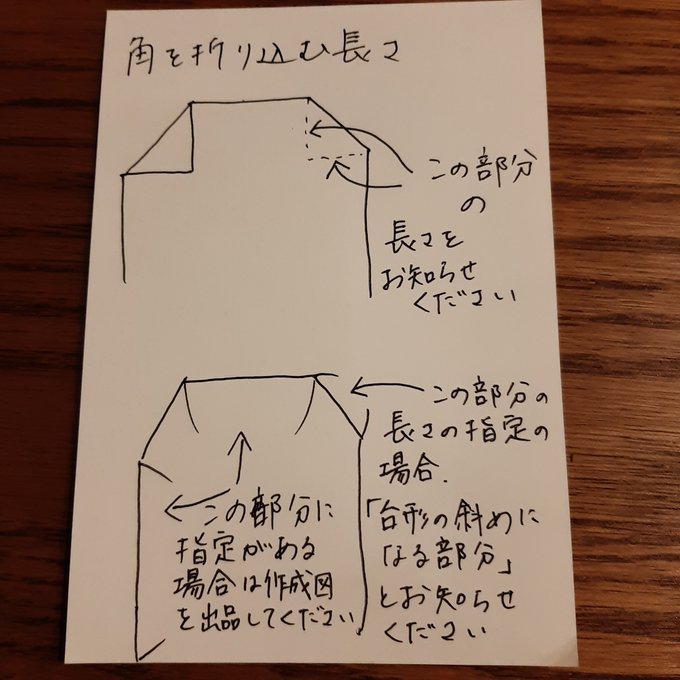 角を折り込む長さ
この部分
の
長さを
お知らせ
ください
この部分の
長さの指定の
場合.
「台形の斜めに
なる部分」
とお知らせ
ください
この部分に
指定がある
場合は作成図
を出品してください